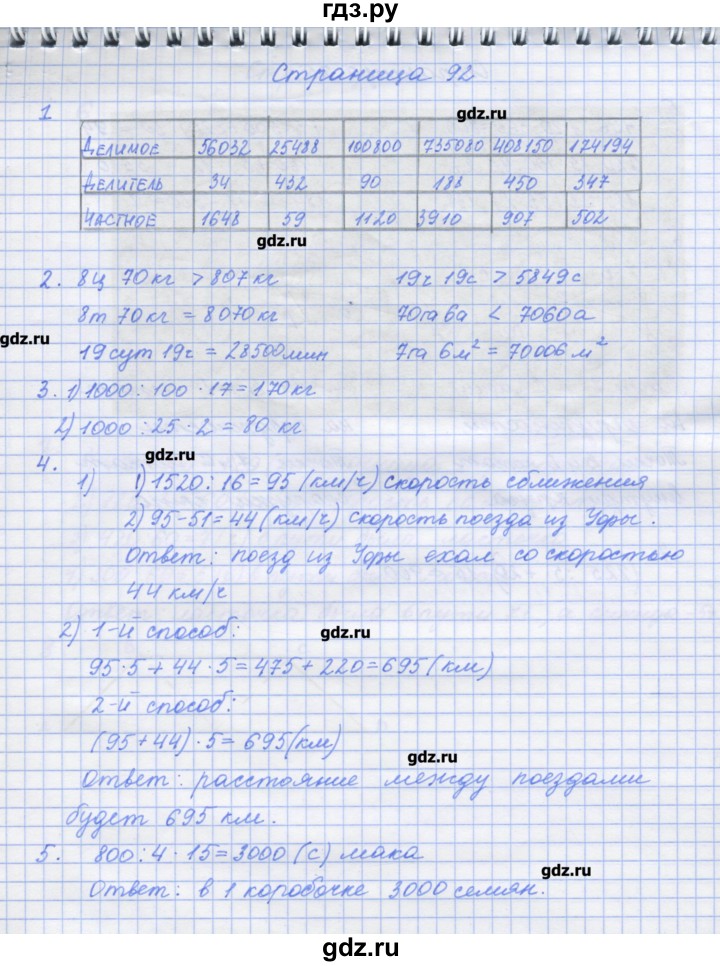 гдз.ру
Страница 92
1
gdz.ru
Делимое 56032 25488 100800 735080 408150 174194
Делитель 34 432 90 188 450 347
Частное 1648 59 1120 3910 907 502
gdz.ru
2. 8ц 70кг > 807кг 19ч 19с > 5849с
8т 70кг = 8070кг 70га 6а < 7060а
gdz.ru
19сут 19ч = 28500мин 7га 6м² = 70006м²
3. 1) 1000 : 100 · 17 = 170кг
2) 1000 : 25 · 2 = 80 кг
gdz.ru
4.
1) 1) 1520 : 16 = 95 (км/ч) скорость сближения
2) 95 - 51 = 44 (км/ч) скорость поезда из Уфры.
Ответ: поезд из Уфры ехал со скоростью
44 км/ч
2) 1-й способ:
gdz.ru
95 · 5 + 44 · 5 = 475 + 220 = 695 (км)
2-й способ:
(95 + 44) · 5 = 695 (км)
gdz.ru
Ответ: расстояние между поездами
будет 695 км.
5. 800 : 4 · 15 = 3000 (с) мака
gdz.ru
Ответ: в 1 коробочке 3000 семян.
gdz.ru